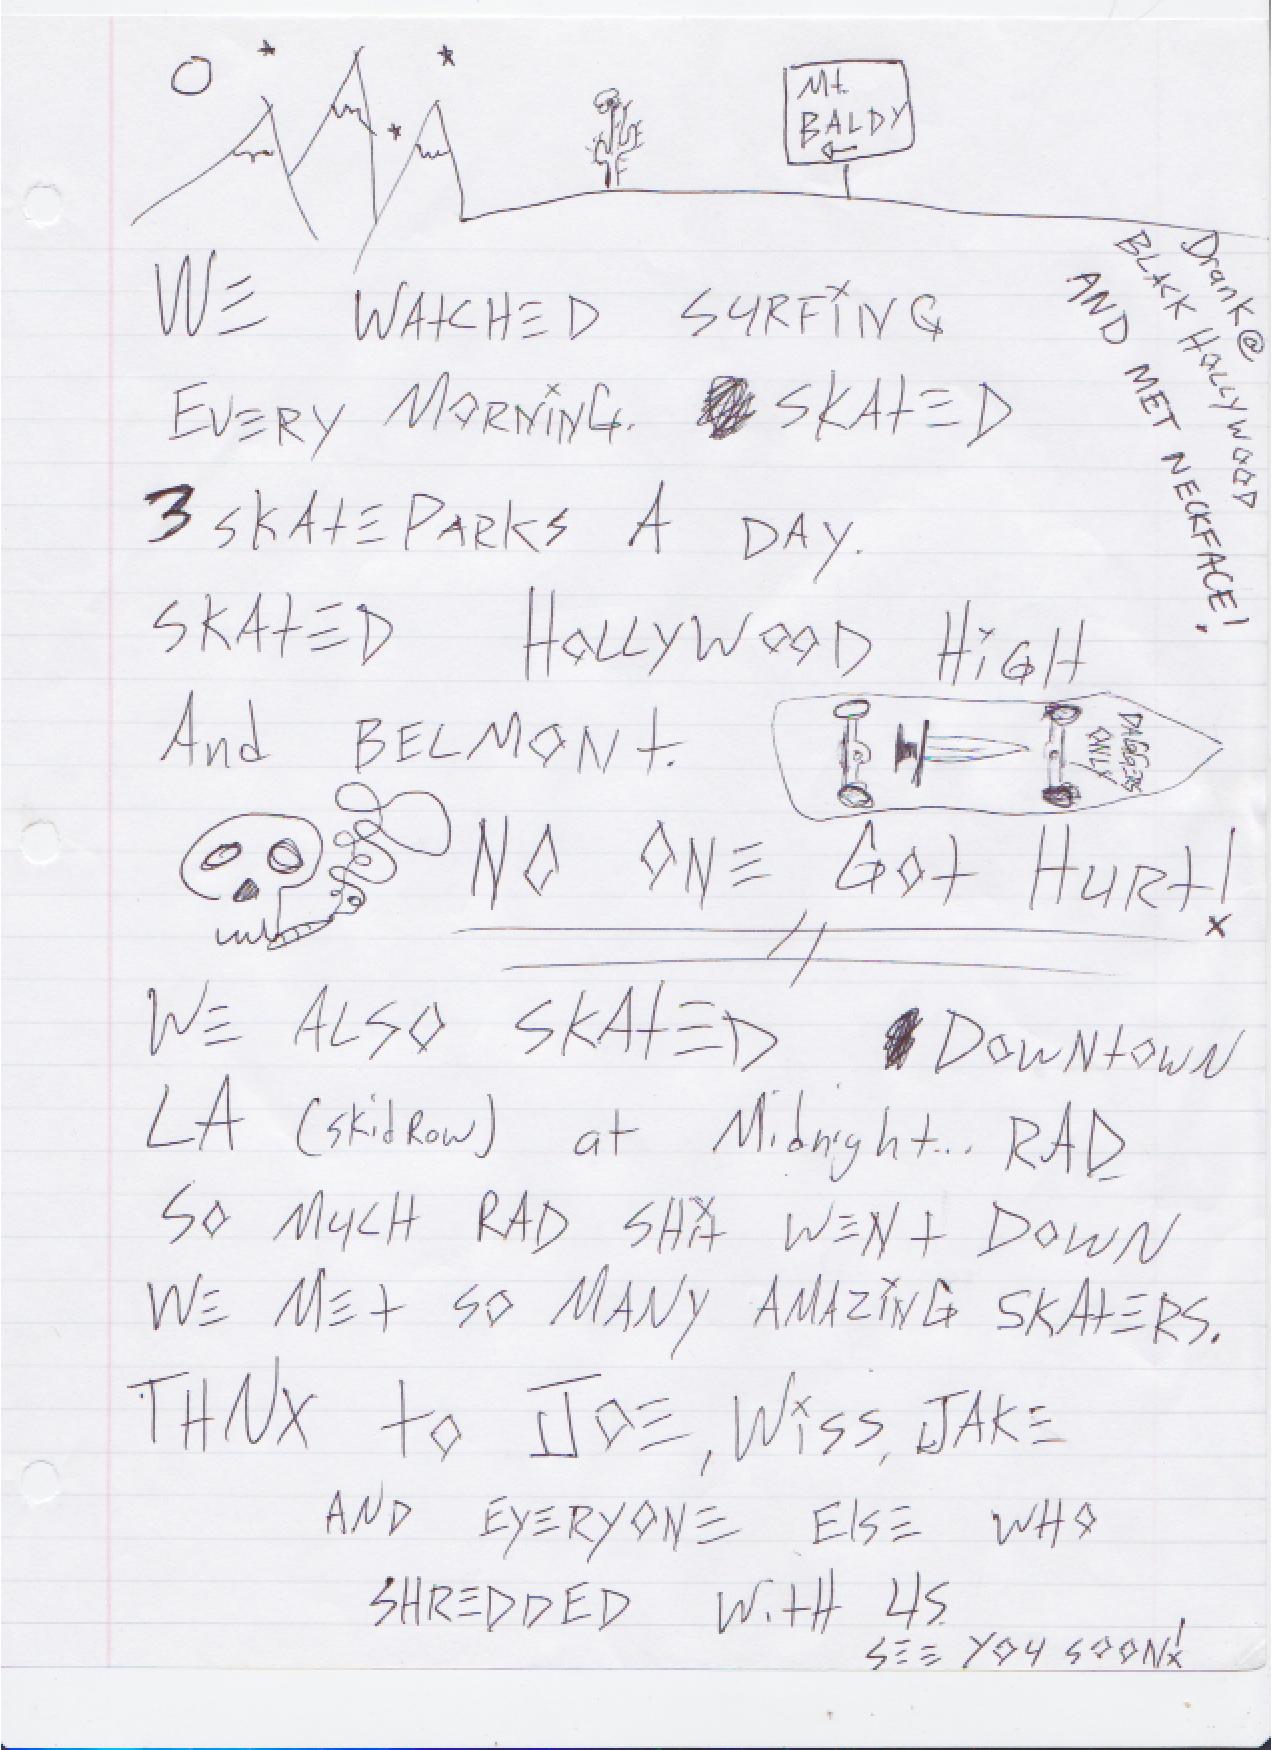 Mt.
BALDY
Drank @
BLACK HOLLYWOOD
AND MET NECKFACE!
WE WATCHED SURFING
EVERY MORNING. SKATED
3 SKATEPARKS A DAY.
SKATED HOLLYWOOD HIGH
And BELMONT.
DAGGERS
ONLY
NO ONE GOT HURT!
WE ALSO SKATED DOWNTOWN
LA (skid Row) at Midnight... RAD
SO MUCH RAD SHIT WENT DOWN
WE MET SO MANY AMAZING SKATERS.
THNX to JOE, WISS, JAKE
AND EYERYONE ELSE WHO
SHREDDED WITH US
SEE YOU SOON!